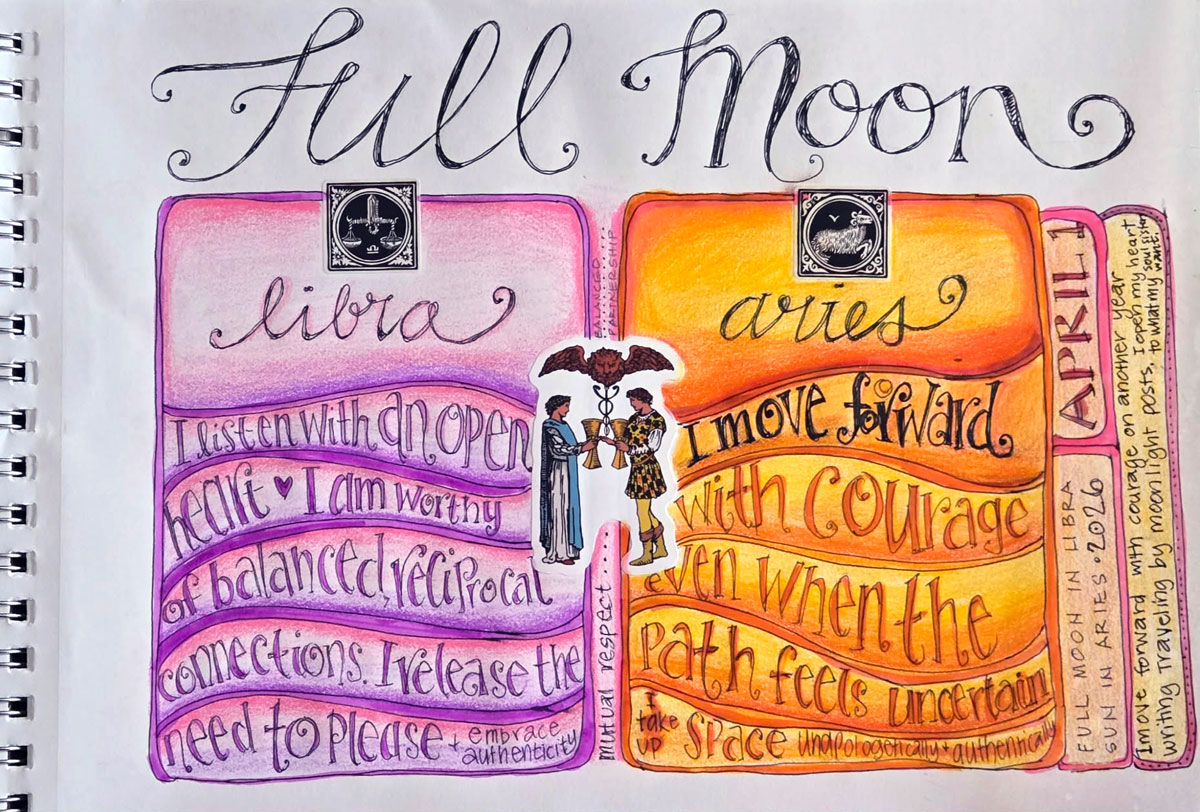 Full Moon
libra
I listen with an open
heart ♥ I am worthy
of balanced, reciprocal
connections. I release the
need to please + embrace
authenticity
BALANCED
PARTNERSHIP
mutual respect ...
aries
I move forward
with courage
even when the
path feels uncertain
I take up space unapologetically + authentically
APRIL 1
FULL MOON IN LIBRA
SUN IN ARIES • 2026
I move forward with courage on another year
writing traveling by moonlight posts. I open my heart
to what my soul sister
want.